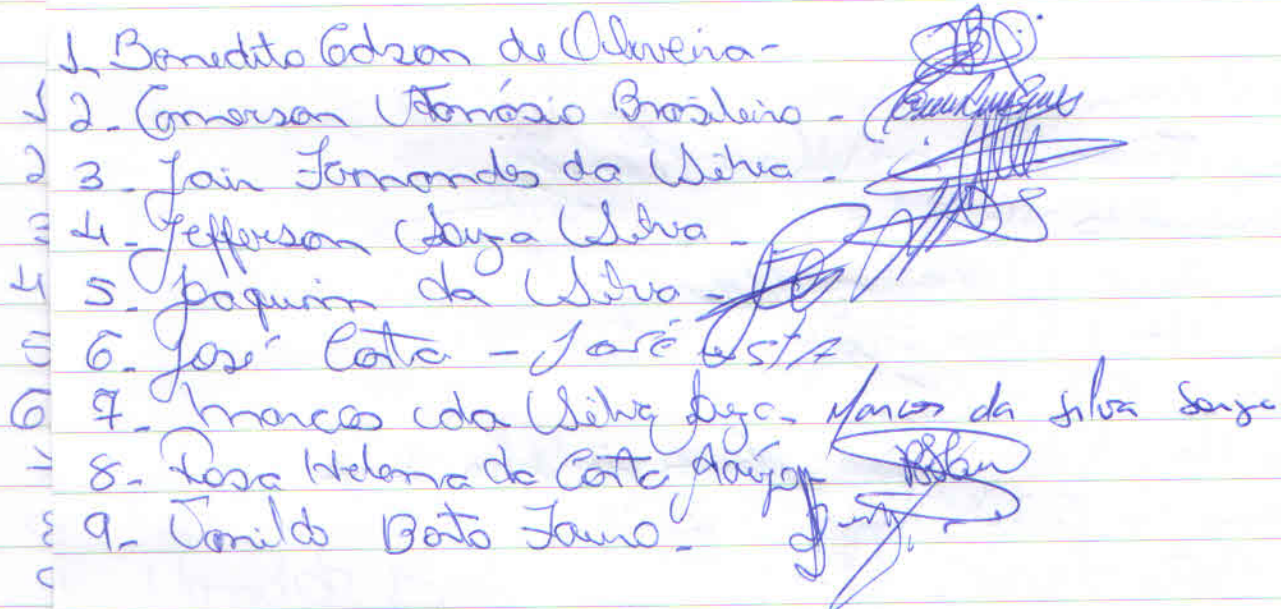 1- Benedito Edson de Oliveira -
1 2- Emerson Atanásio Brasileiro -
2 3- Jair Fernandes da Silva -
3 4- Jefferson Souza Silva -
4 5- Joaquim da Silva -
5 6- José Costa - José Costa
6 7- Marcos da Silva Souza - Marcos da Silva Souza
7 8- Rosa Helena da Costa Araújo -
8 9- Vanildo Bento -